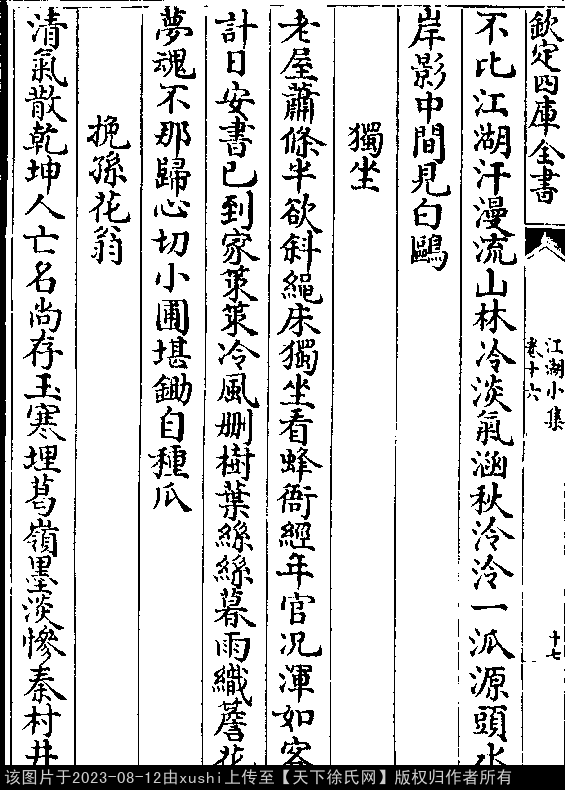 欽定四庫全書
江湖小集
卷十六
十七
不比江湖汗漫流山林冷淡氣涵秋泠泠一派源頭水
岸影中間見白鷗
獨坐
老屋蕭條半欲斜繩床獨坐看蜂衙經年官况渾如客
計日安書已到家策策冷風刪樹葉絲絲暮雨織簷花
夢魂不那歸心切小圃堪鋤自種瓜
挽孫花翁
清氣散乾坤人亡名尚存玉寒埋葛嶺墨淡慘秦村井
该图片于2023-08-12由xushi上传至【天下徐氏网】版权归作者所有